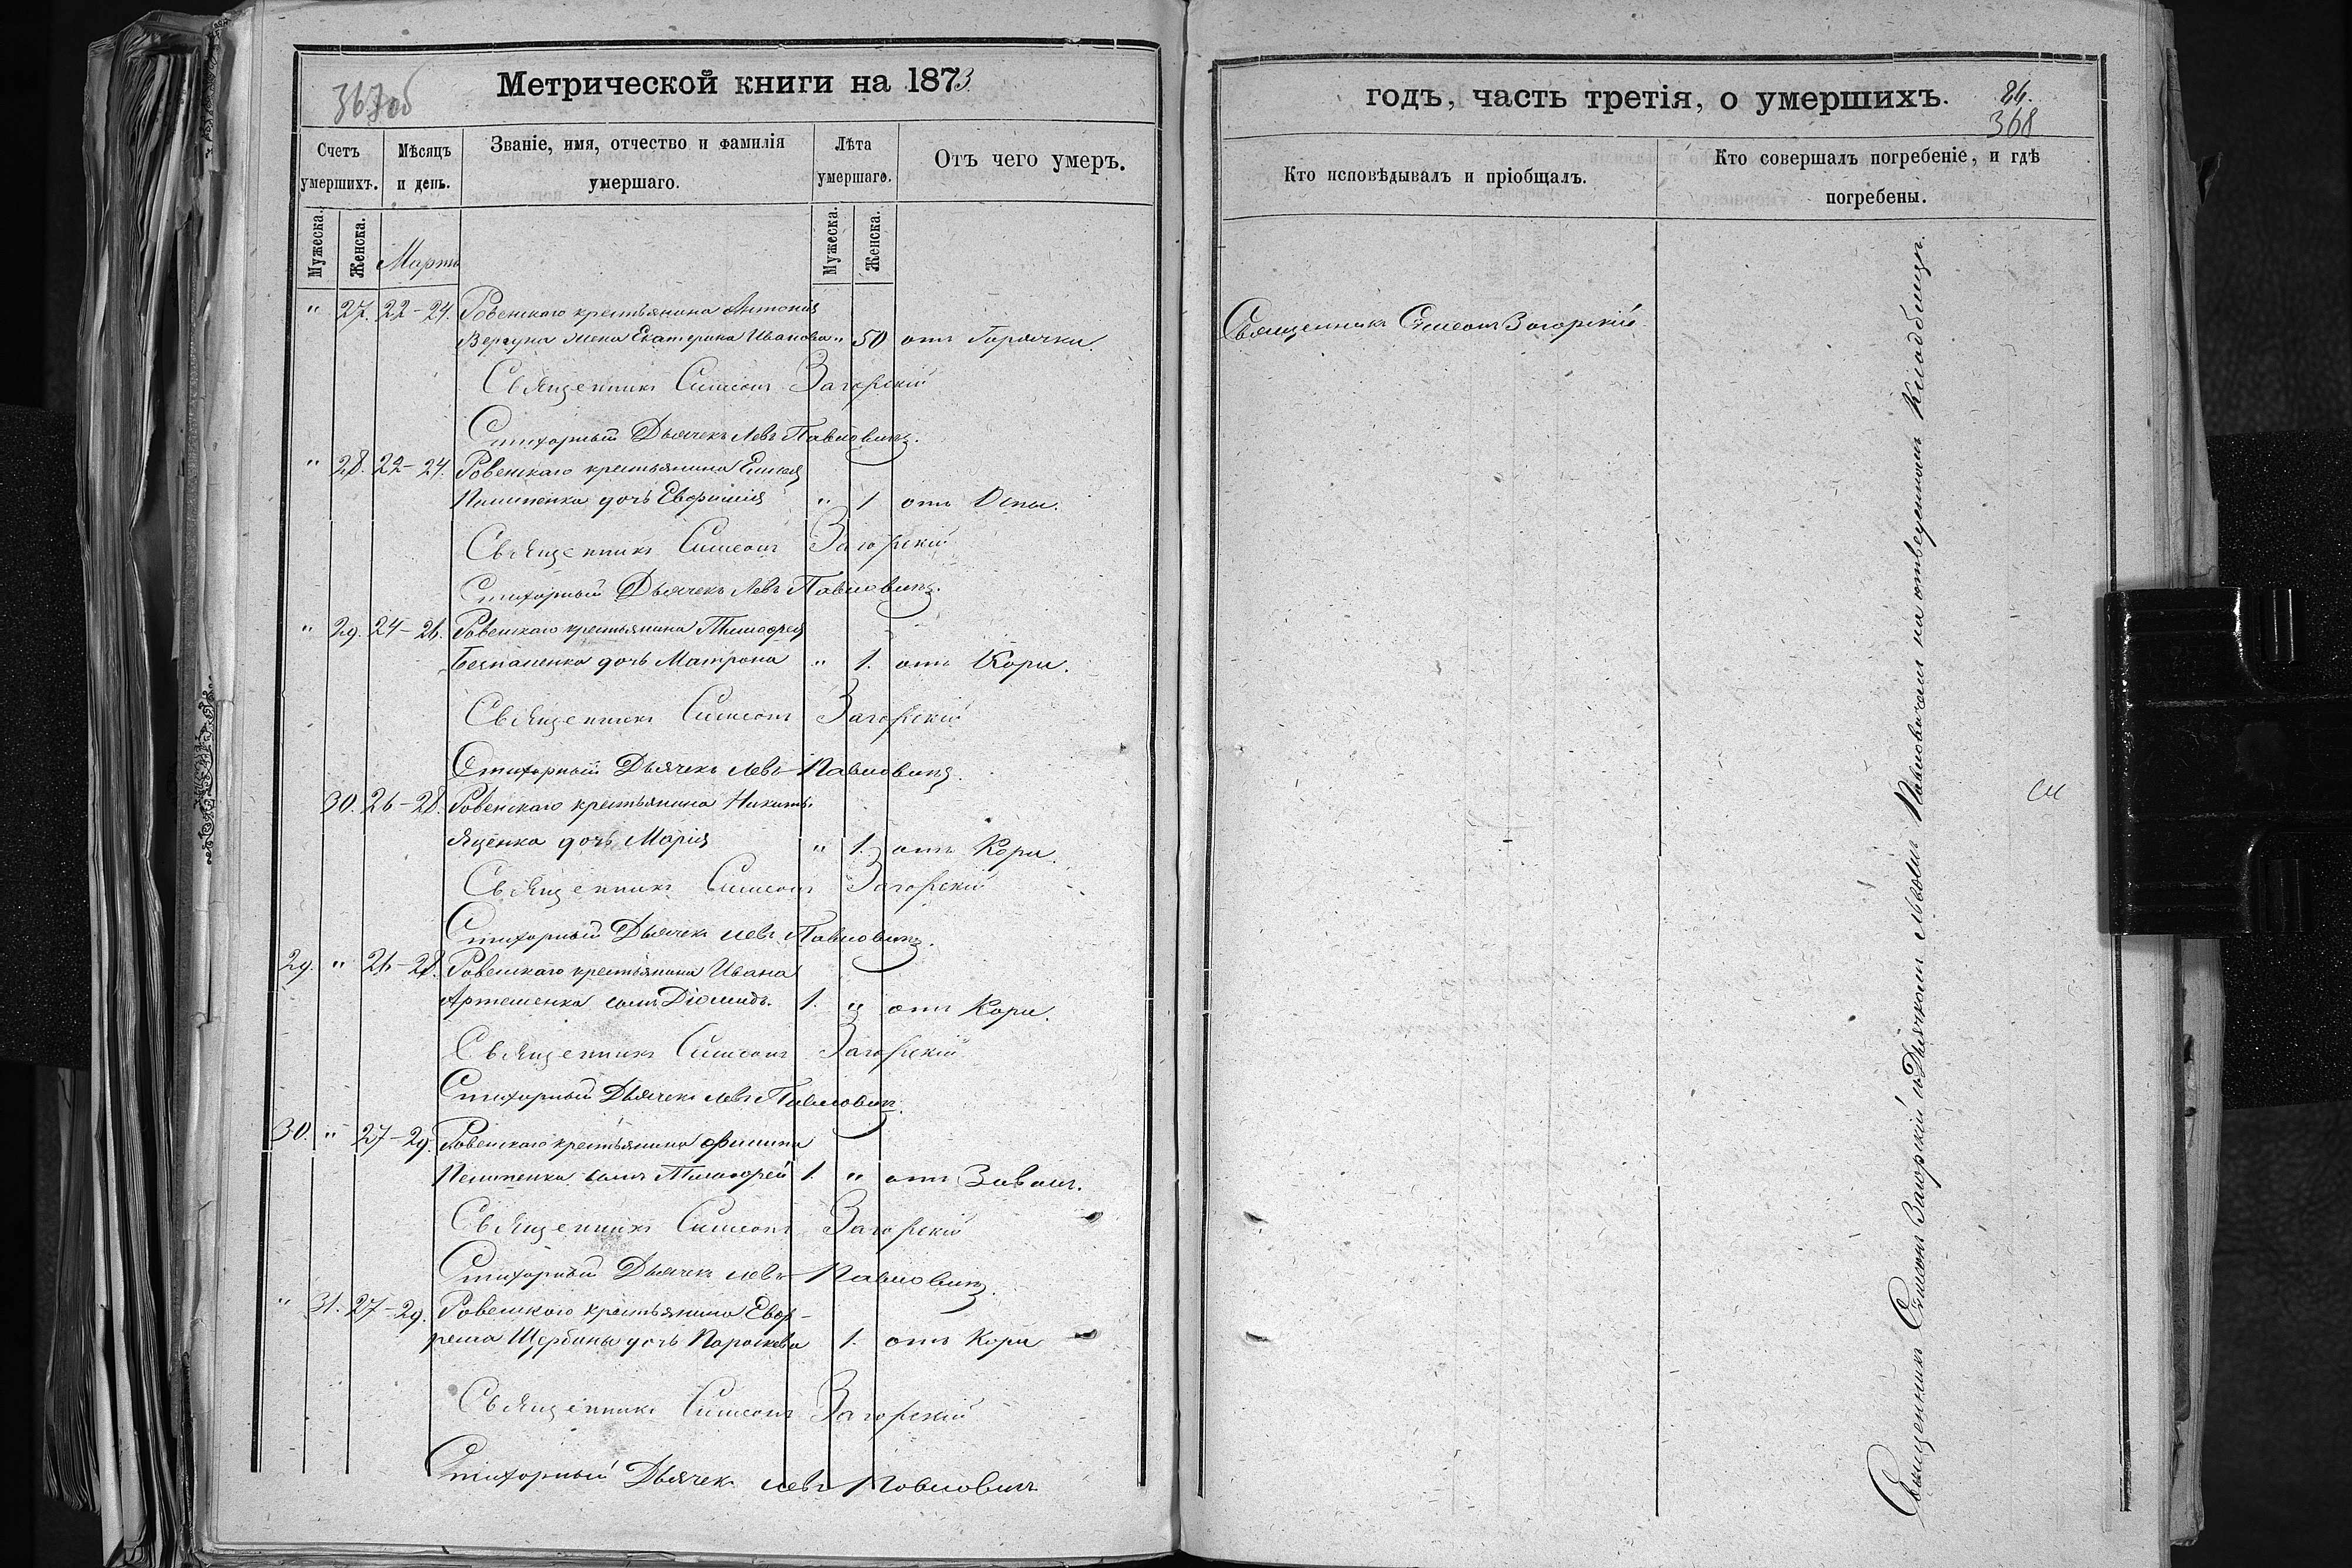 367 об
Метрической книги на 1873
Счетъ умершихъ.
Мѣсяцъ и день.
Званіе, имя, отчество и фамилія умершаго.
Лѣта умершаго.
Отъ чего умеръ.
Мужеска. Женска. Марта Мужеска. Женска.
" 27. 22-24. Ровенскаго крестьянина Антонія
Вергуна жена Екатерина Иванова " 50 отъ Горячки.
Священникъ Симеонъ Загорскій
Стихарный Дьячекъ Левъ Павловичъ.
" 28. 22-24. Ровенскаго крестьянина
дочь Евфимія " 1 отъ Оспы.
Священникъ Симеонъ Загорскій
Стихарный Дьячекъ Левъ Павловичъ.
" 29. 24-26. Ровенскаго крестьянина Тимофея
дочь Матрона " 1. отъ Кори.
Священникъ Симеонъ Загорскій
Стихарный Дьячекъ Левъ Павловичъ.
30. 26-28. Ровенскаго крестьянина Никиты
Яценка дочь Марія " 1. отъ Кори.
Священникъ Симеонъ Загорскій
Стихарный Дьячекъ Левъ Павловичъ.
29. " 26-28. Ровенскаго крестьянина Ивана
Артеменка сынъ Діомидъ. 1. " отъ Кори.
Священникъ Симеонъ Загорскій
Стихарный Дьячекъ Левъ Павловичъ.
30. " 27-29. Ровенскаго крестьянина Филипа
сынъ Тимофей 1. " отъ
Священникъ Симеонъ Загорскій
Стихарный Дьячекъ Левъ Павловичъ.
" 31. 27-29. Ровенскаго крестьянина Евф-
рема Щербины дочь Параскева 1. отъ Кори
Священникъ Симеонъ Загорскій
Стихарный Дьячекъ Левъ Павловичъ
годъ, часть третія, о умершихъ.
368
Кто исповѣдывалъ и пріобщалъ.
Кто совершалъ погребеніе, и гдѣ погребены.
Священникъ Симеонъ Загорскій.
Священникъ Симеонъ Загорскій съ Дьячкомъ Львомъ Павловичемъ на отведенномъ Кладбищѣ.